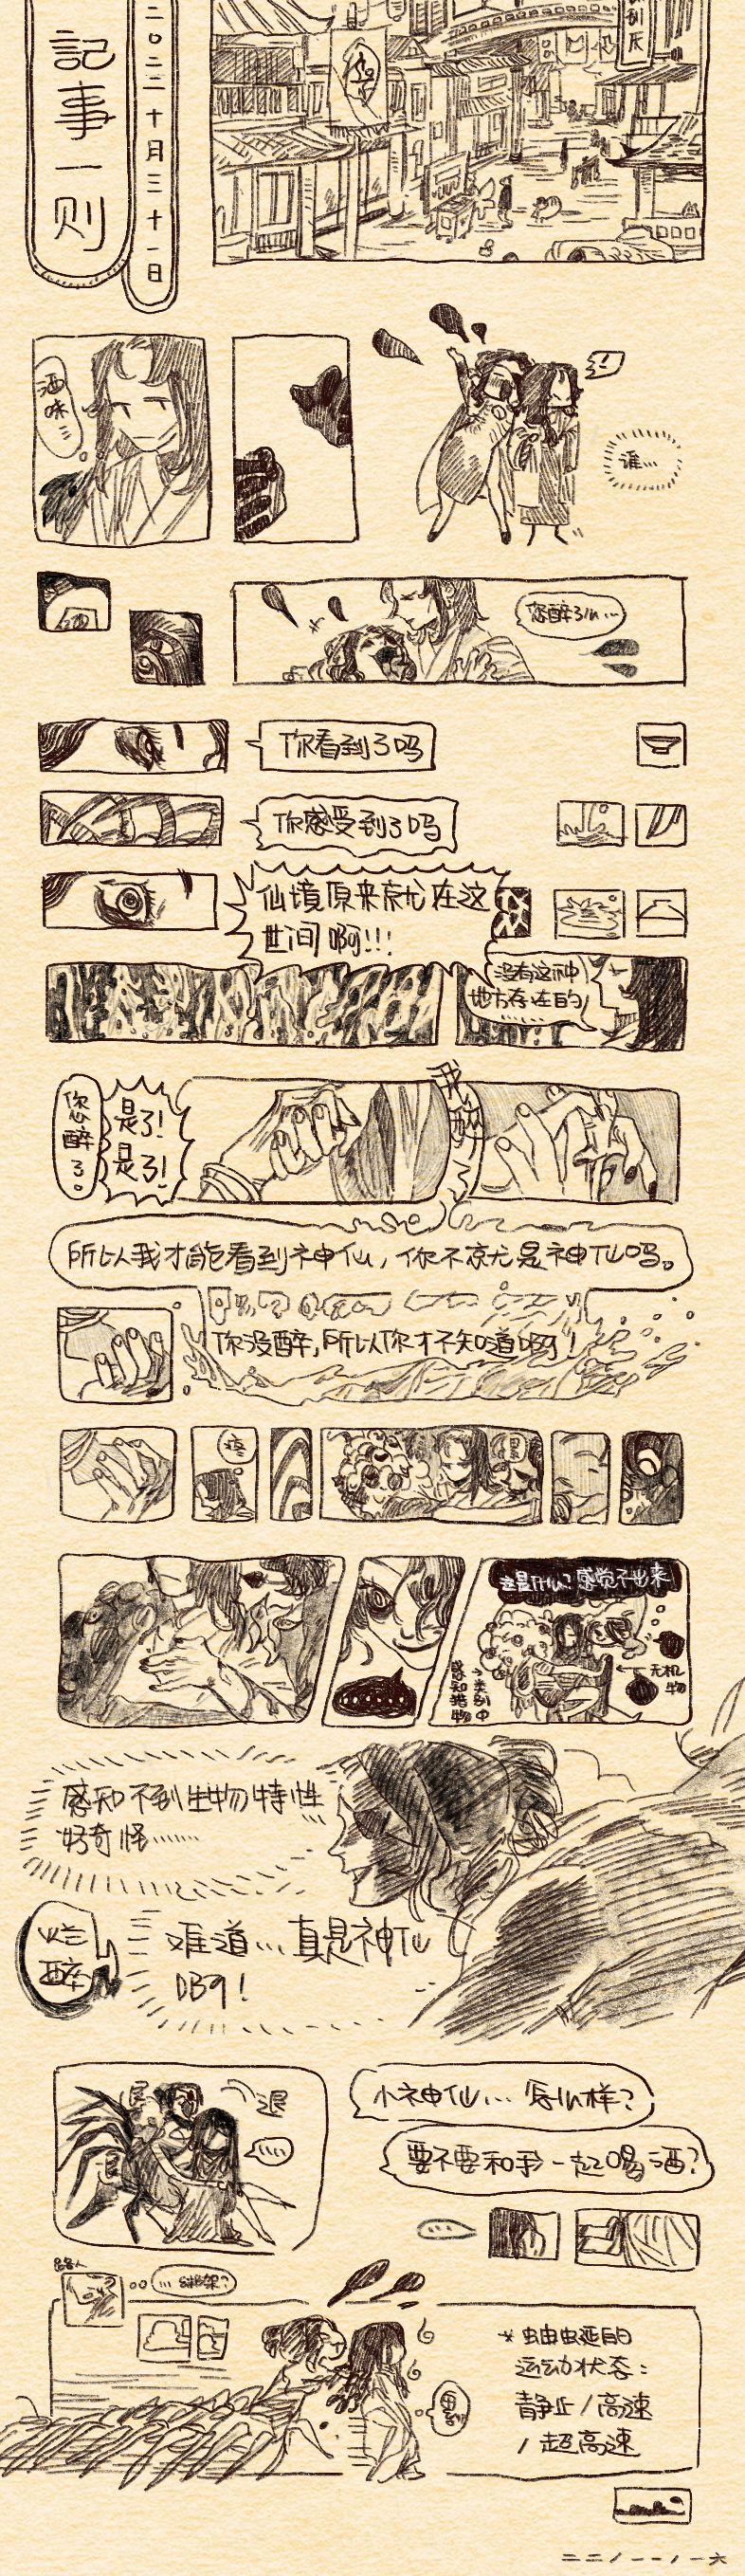 記事一则
二〇二二十月三十一日
酒味…
!
谁…
您醉了…
你看到了吗
你感受到了吗
仙境原来就在这
世间啊!!!
没有这种
地方存在的
……
您醉了。
是了!
是了!
我醉了
所以我才能看到神仙,你不就是神仙吗。
你没醉,所以你才不知道啊!
疼
这是什么?感觉不出来
感知猎物
无机物
感知不到生物特性
好奇怪……
烂醉
难道…真是神仙
啊!
小神仙…怎么样?
要不要和我一起喝酒?
路人
…绑架?
运动状态:
静止/高速
/超高速
二二/一一/一六